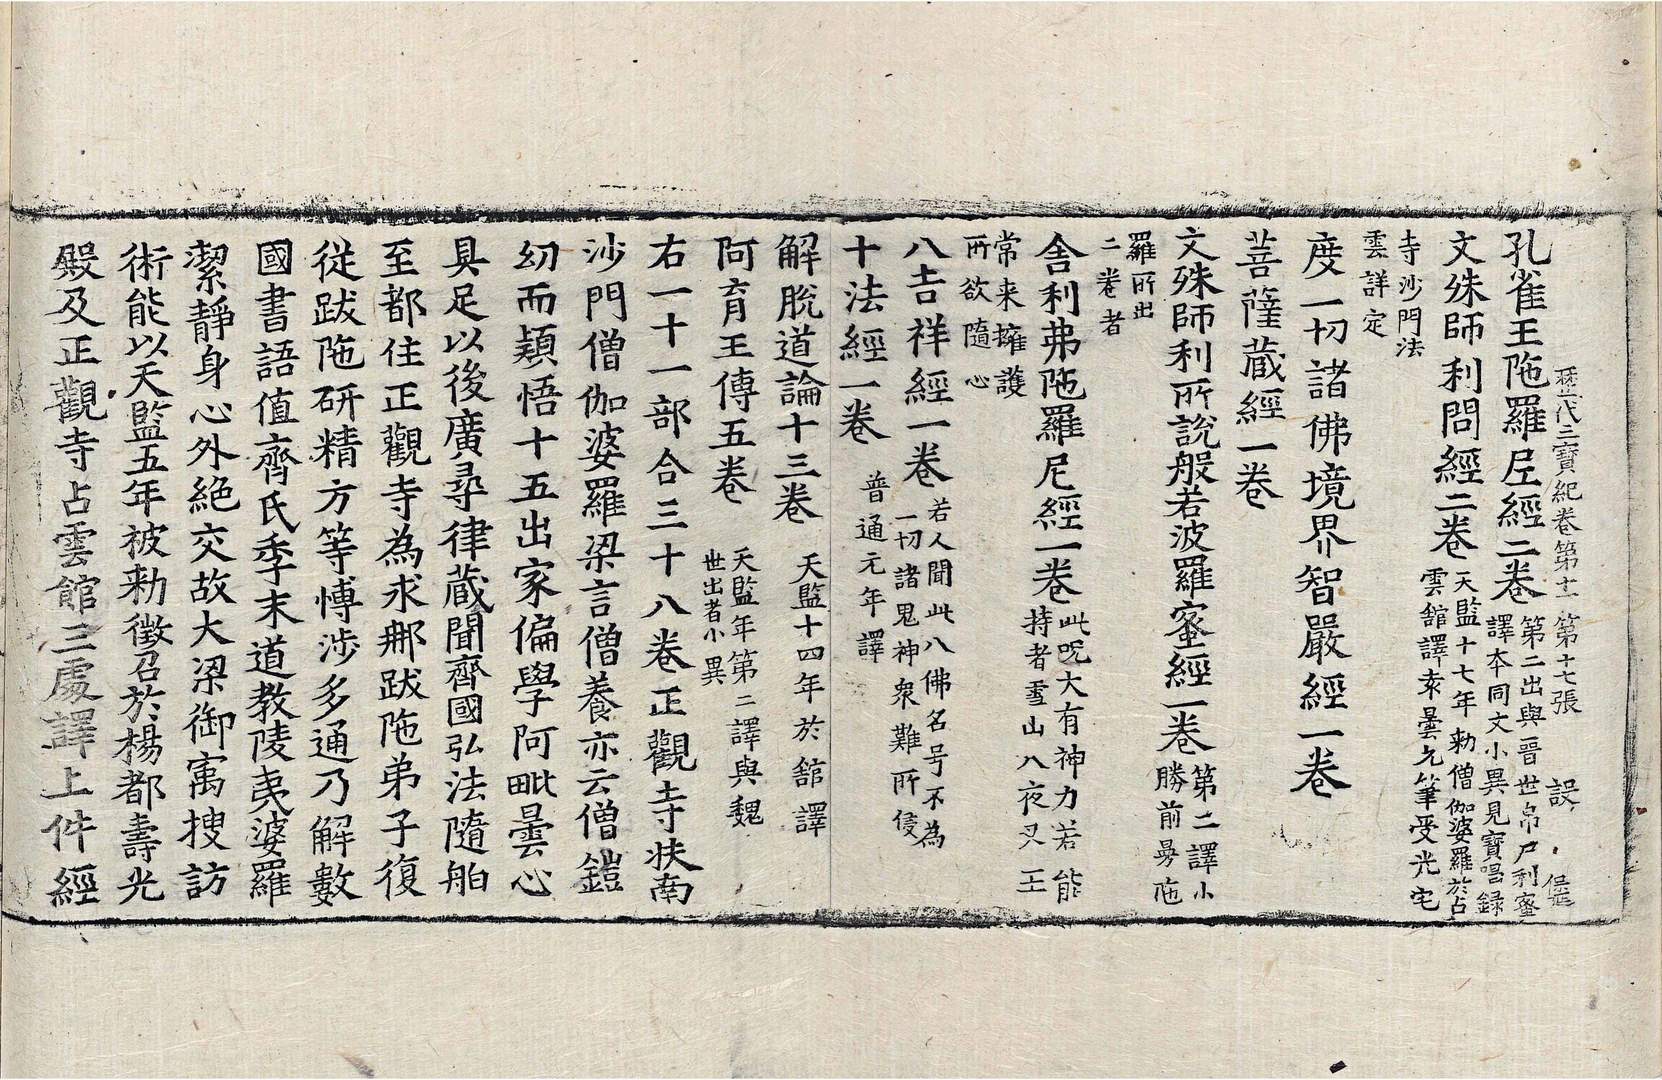 歷代三寶紀卷第十一 第十七張 設
孔雀王陁羅尼經二卷 第二出與晉世帛尸利蜜譯本同文小異見寶唱錄
文殊師利問經二卷 天監十七年勅僧伽婆羅於占雲館譯袁曇允筆受光宅
寺沙門法雲詳定
度一切諸佛境界智嚴經一卷
菩薩藏經一卷
文殊師利所說般若波羅蜜經一卷 第二譯小勝前曼陁
羅所出二卷者
舍利弗陁羅尼經一卷 此呪大有神力若能持者雪山八夜叉王
常来擁護所欲隨心
八吉祥經一卷 若人聞此八佛名号不為一切諸鬼神衆難所侵
十法經一卷 普通元年譯
解脫道論十三卷 天監十四年於舘譯
阿育王傳五卷 天監年第二譯與魏世出者小異
右一十一部合三十八卷正觀寺扶南
沙門僧伽婆羅梁言僧養亦云僧鎧
幼而頴悟十五出家偏學阿毗曇心
具足以後廣尋律蔵聞齊國弘法隨舶
至都住正觀寺為求那跋陁弟子復
從跋陁研精方等博涉多通乃解數
國書語值齊氏季末道教陵夷婆羅
潔靜身心外絕交故大梁御寓搜訪
術能以天監五年被勅徵召於楊都壽光
殿及正觀寺占雲館三處譯上件經